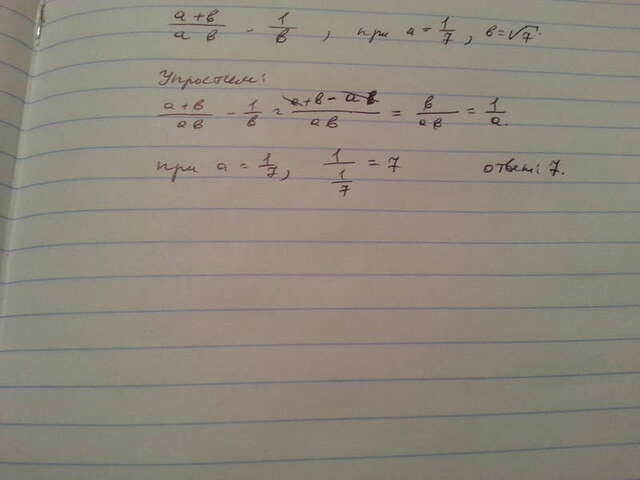 (a+b)/(a b) - 1/b , при a = 1/7, b = √7.
Упростим:
(a+b)/(ab) - 1/b = (a+b-a)/(ab) = b/(ab) = 1/a.
при a = 1/7, 1/(1/7) = 7 ответ: 7.